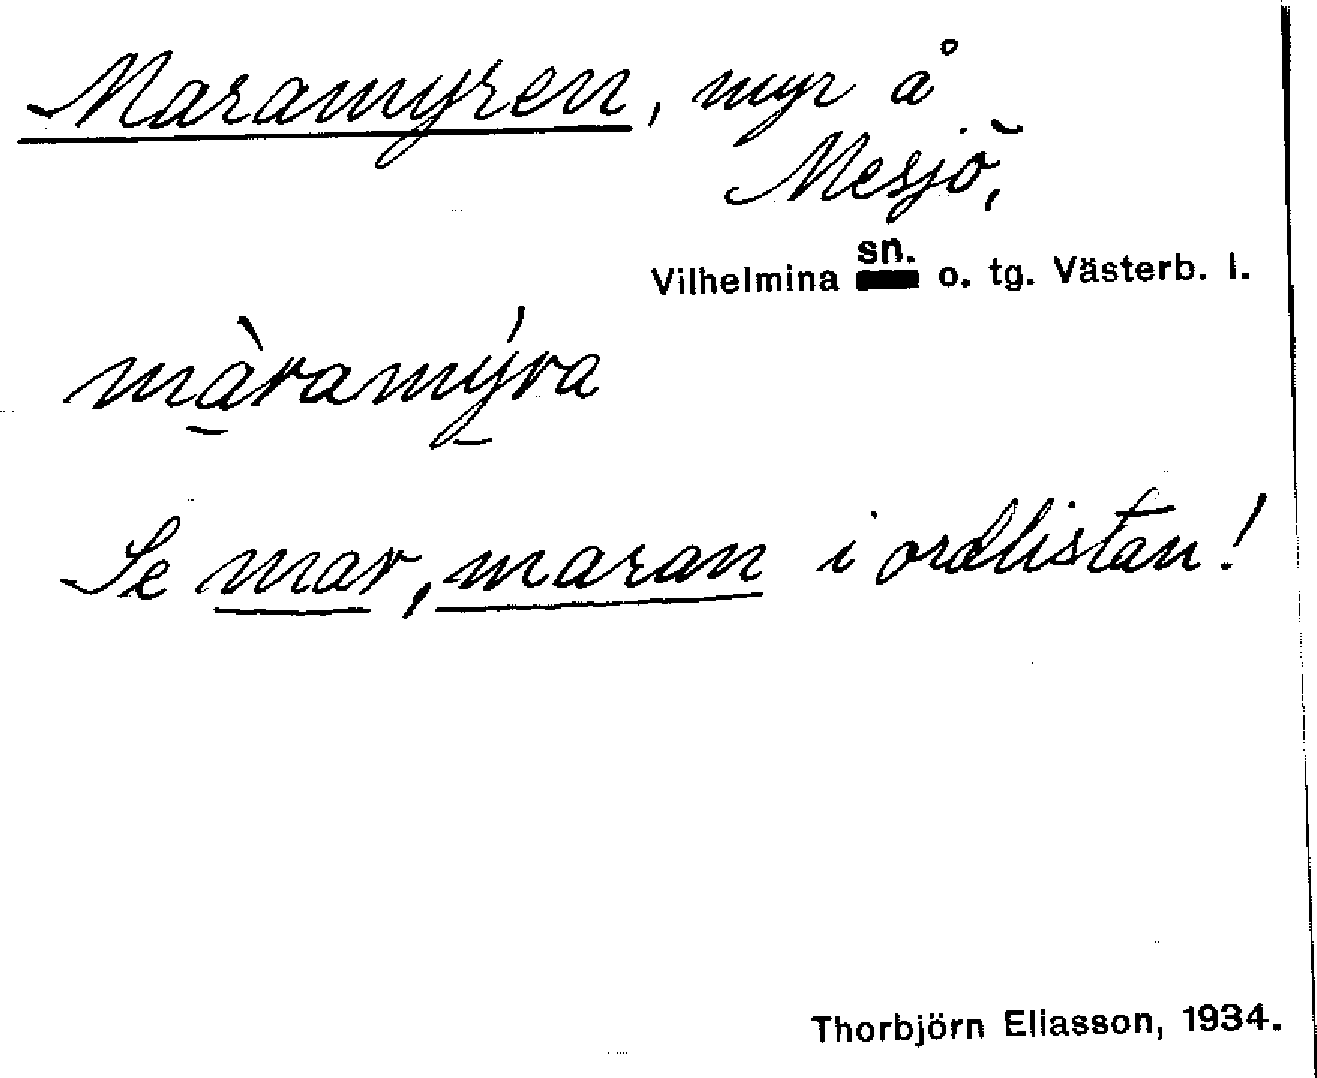 Maramyren, myr å
Mesjö,
Vilhelmina sn. o. tg. Västerb. l.
màramýra
Se mar, maran i ordlistan!
Thorbjörn Eliasson, 1934.